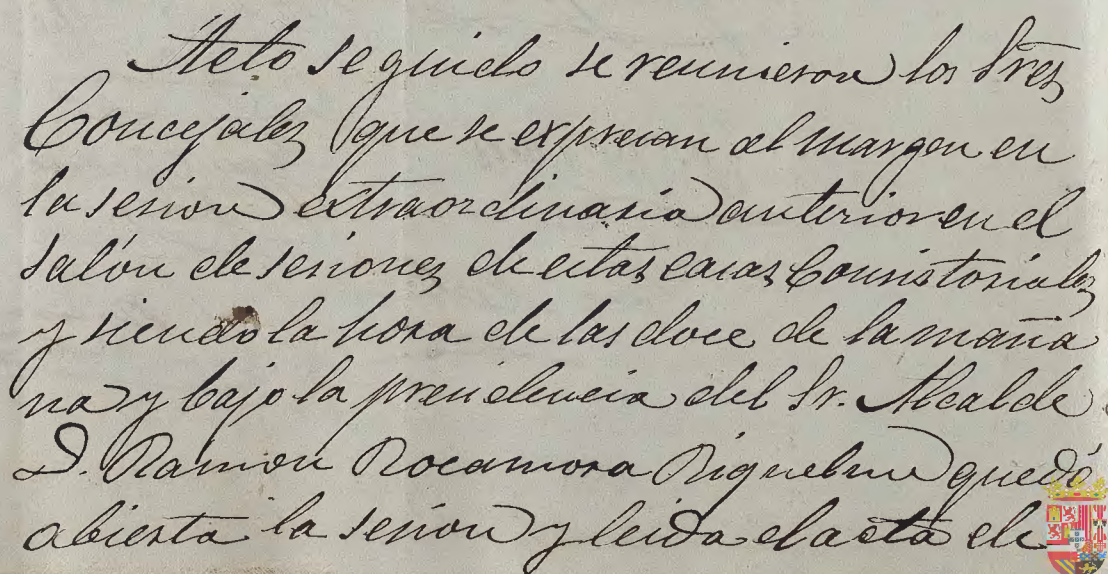 Acto seguido se reunieron los Sres
Concejales que se expresan al margen en
la sesion extraordinaria anterior en el
salón de sesiones de estas casas Consistoriales
y siendo la hora de las doce de la maña
na y bajo la presidencia del Sr. Alcalde
D. Ramon Rocamora Riquelme quedó
abierta la sesion y leida el acta de